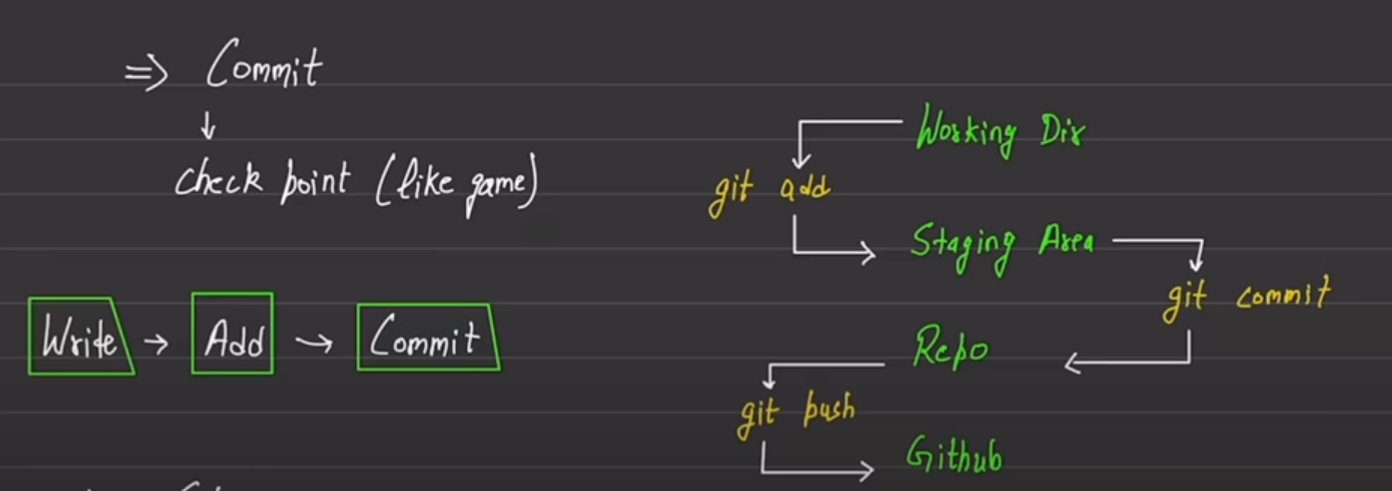 ⇒ Commit
↓
check point (like game)
Write → Add → Commit
Working Dir
git add
Staging Area
git commit
Repo
git push
Github